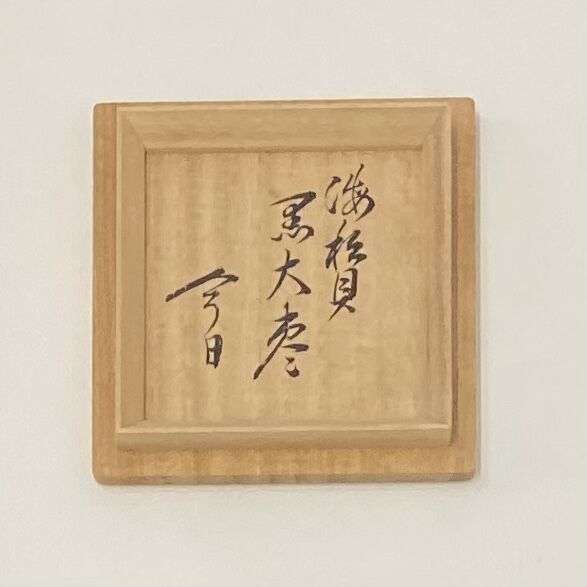 海松貝
黒大棗
今日